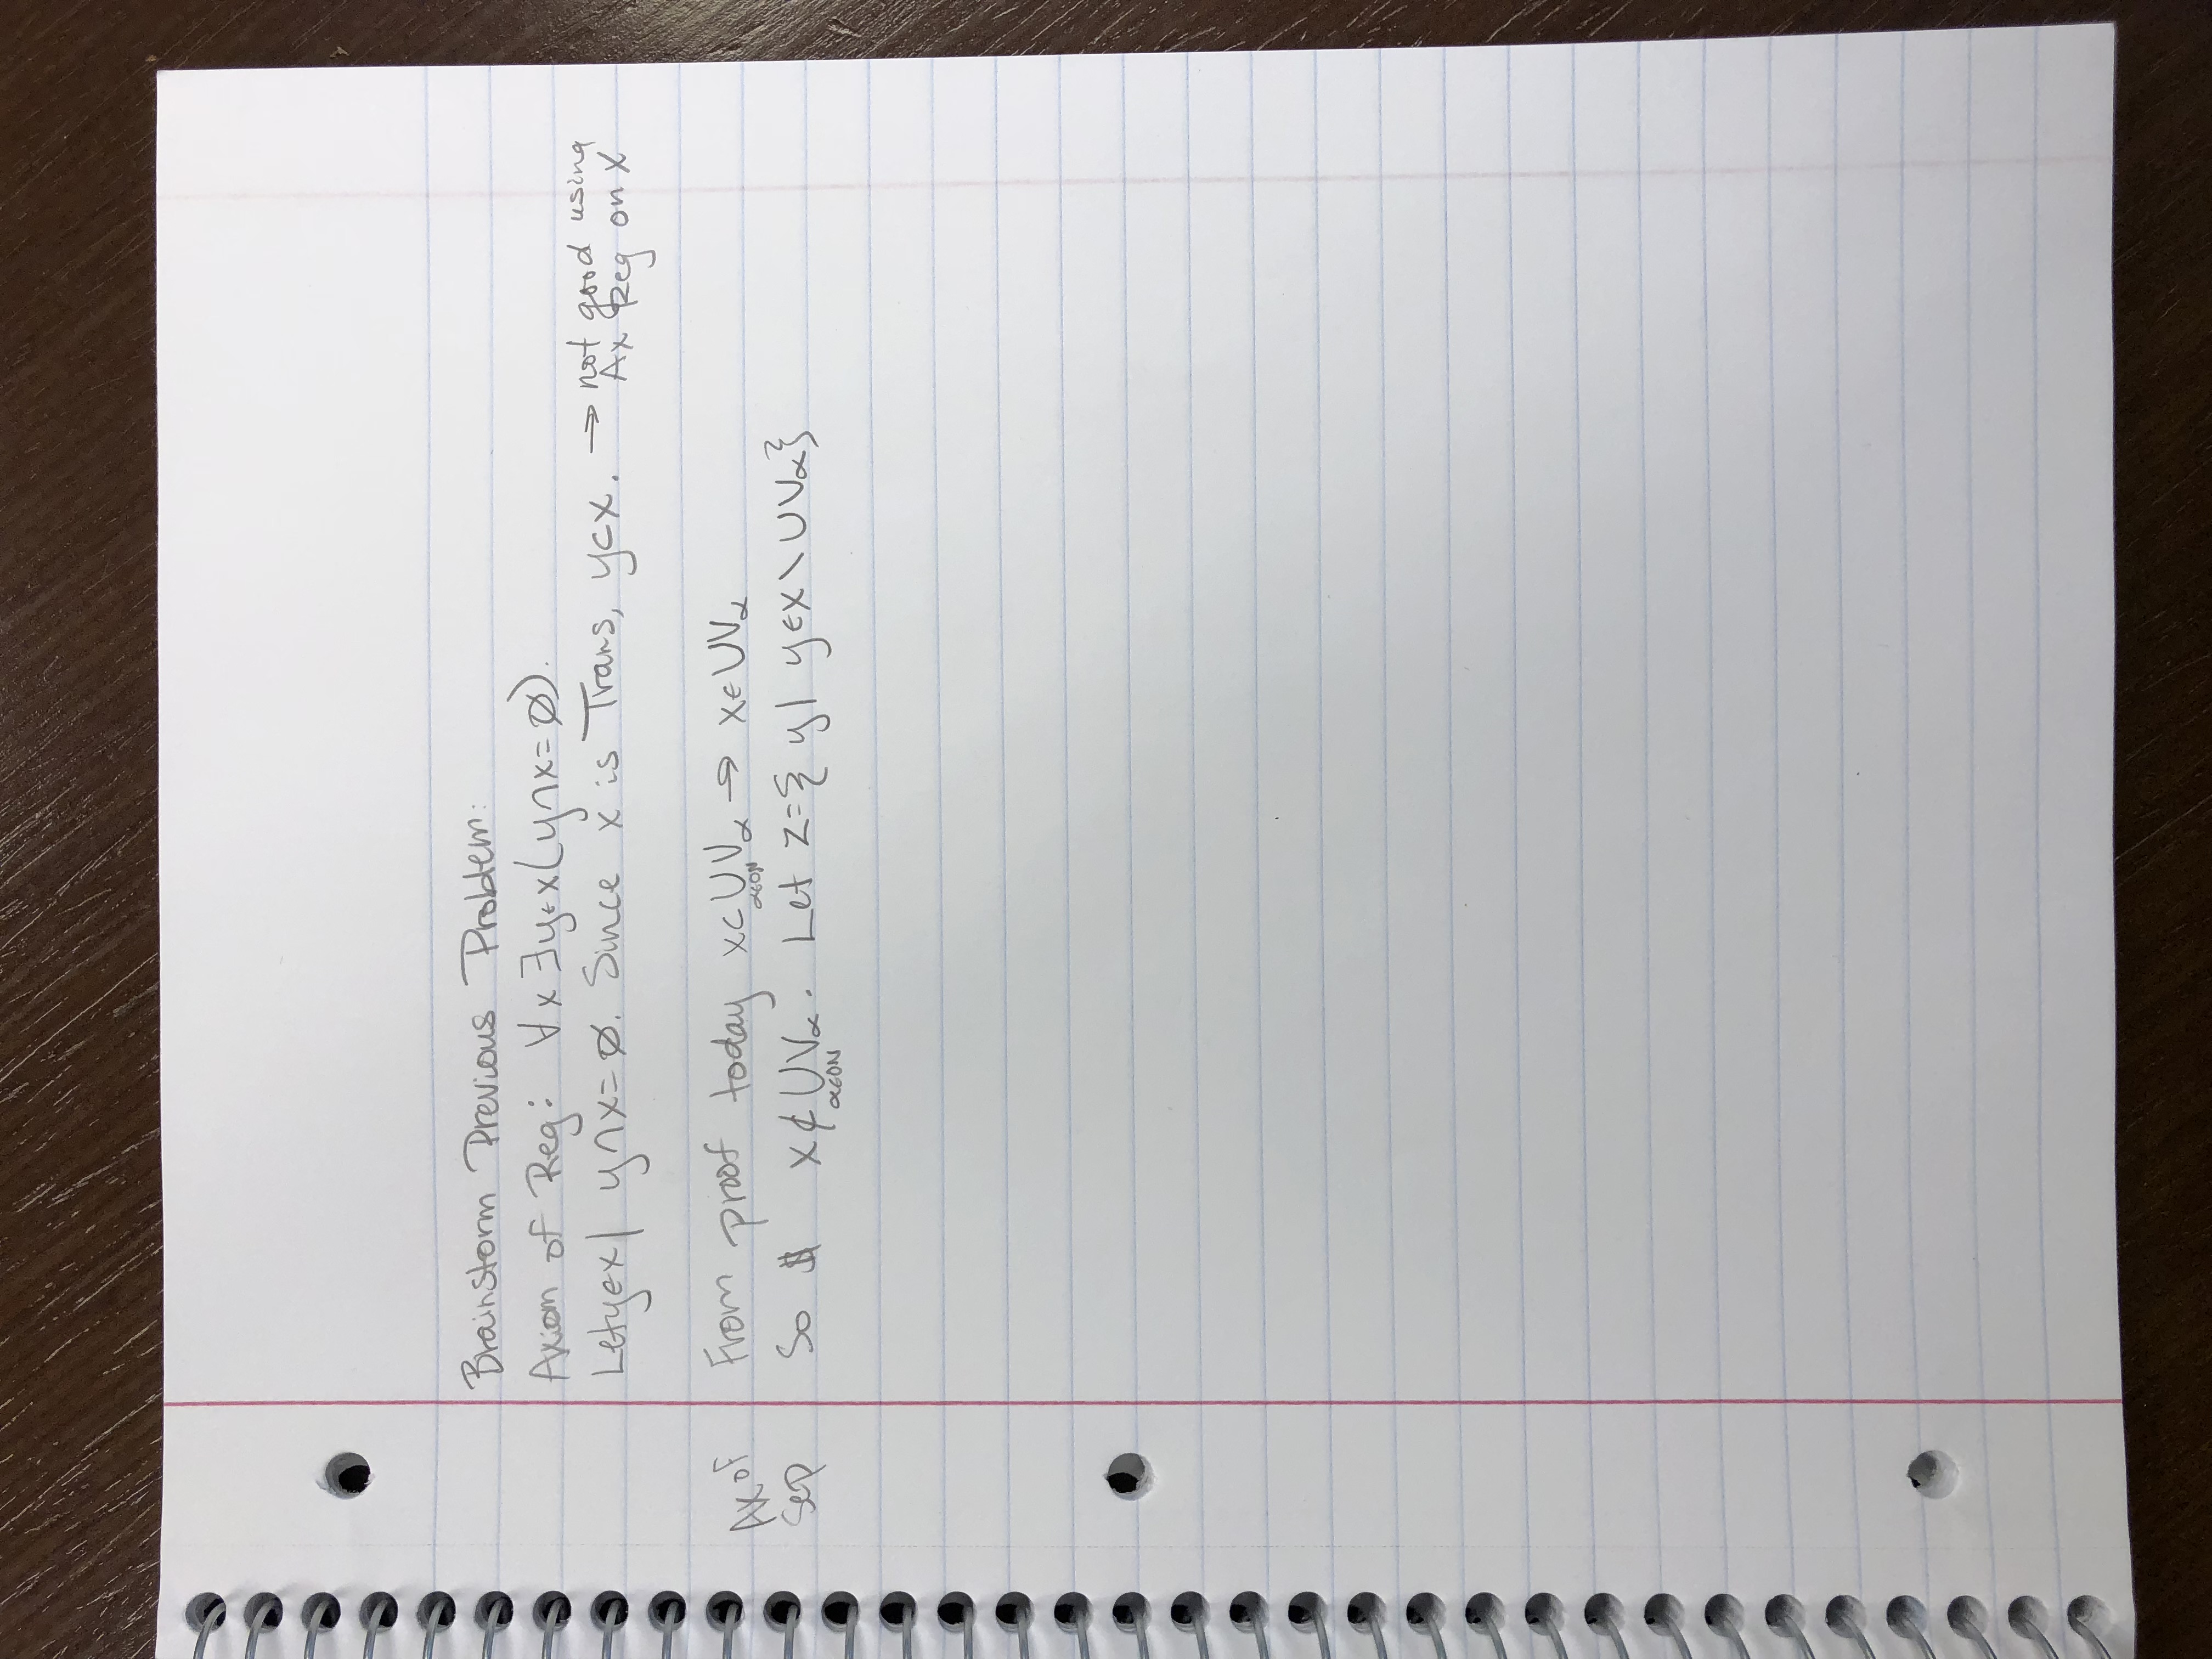 Brainstorm Previous Problem:
Axiom of Reg: ∀x ∃y∈x(y∩x=∅).
Let y∈x | y∩x=∅. Since x is Trans, y⊂x. → not good using
Ax Reg on X
Ax of
Sep
From proof today x⊂⋃Vα → x∈⋃Vα
α∈ON
So x⊄⋃Vα. Let z={y | y∈x\⋃Vα}
α∈ON